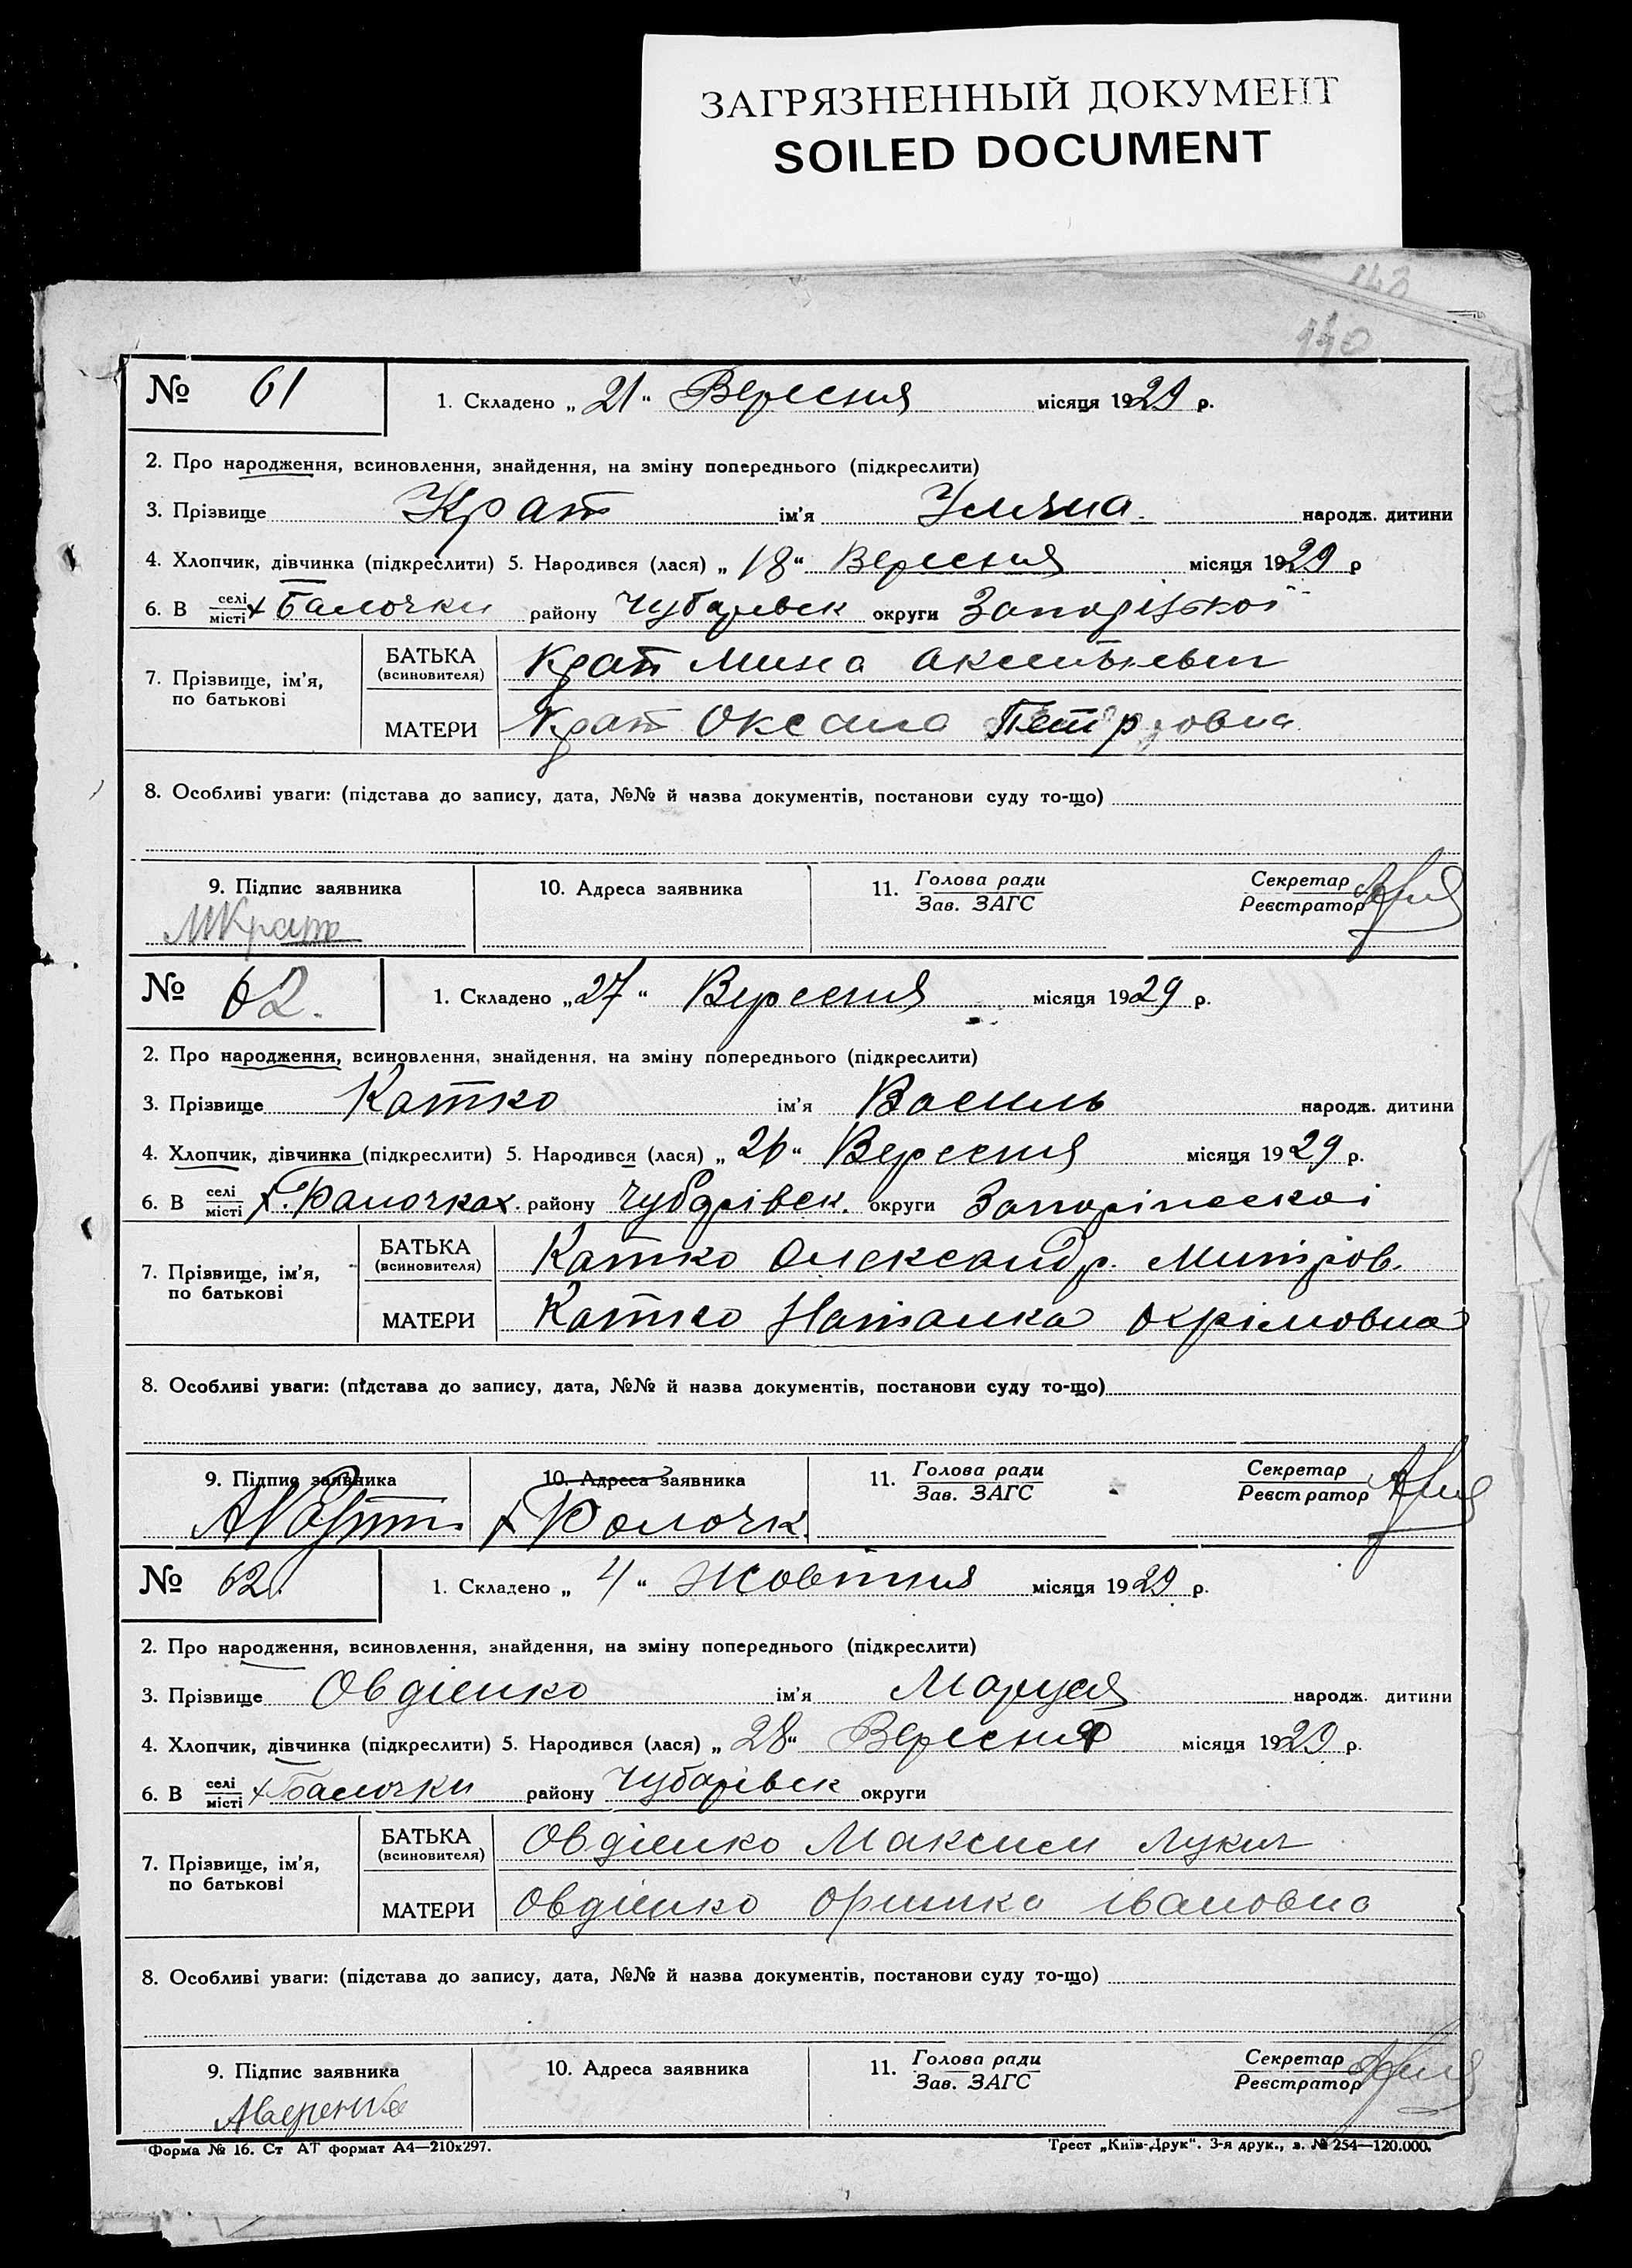 ЗАГРЯЗНЕННЫЙ ДОКУМЕНТ
SOILED DOCUMENT
140
№ 61 1. Складено „21“ Вересня місяця 1929 р.
2. Про народження, всиновлення, знайдення, на зміну попереднього (підкреслити)
3. Прізвище Крат ім'я Уляна народж. дитини
4. Хлопчик, дівчинка (підкреслити) 5. Народився (лася) „18“ Вересня місяця 1929 р
6. В селі/місті х Балочки району Чубарівск округи Запоріжкої
7. Прізвище, ім'я, по батькові БАТЬКА (всиновителя) Крат Мина
МАТЕРИ Крат Оксана Петровна
8. Особливі уваги: (підстава до запису, дата, №№ й назва документів, постанови суду то-що)
9. Підпис заявника 10. Адреса заявника 11. Голова ради/Зав. ЗАГС Секретар/Реєстратор
МКрат
№ 62. 1. Складено „27“ Вересня місяця 1929 р.
2. Про народження, всиновлення, знайдення, на зміну попереднього (підкреслити)
3. Прізвище Катко ім'я Василь народж. дитини
4. Хлопчик, дівчинка (підкреслити) 5. Народився (лася) „26“ Вересня місяця 1929 р.
6. В селі/місті х. Балочках. району Чубарівск. округи
7. Прізвище, ім'я, по батькові БАТЬКА (всиновителя) Катко Олександр. Митров.
МАТЕРИ Катко Наталка Охрімовна
8. Особливі уваги: (підстава до запису, дата, №№ й назва документів, постанови суду то-що)
9. Підпис заявника 10. Адреса заявника 11. Голова ради/Зав. ЗАГС Секретар/Реєстратор
х Балочк.
№ 62. 1. Складено „4“ Жовтня місяця 1929 р.
2. Про народження, всиновлення, знайдення, на зміну попереднього (підкреслити)
3. Прізвище Овдієнко ім'я Маруся народж. дитини
4. Хлопчик, дівчинка (підкреслити) 5. Народився (лася) „28“ Вересня місяця 1929 р.
6. В селі/місті х Балочки району Чубарівск округи
7. Прізвище, ім'я, по батькові БАТЬКА (всиновителя) Овдієнко Максим Лукич
МАТЕРИ Овдієнко Оришка Івановна
8. Особливі уваги: (підстава до запису, дата, №№ й назва документів, постанови суду то-що)
9. Підпис заявника 10. Адреса заявника 11. Голова ради/Зав. ЗАГС Секретар/Реєстратор
Форма № 16. Ст АТ формат А4—210х297. Трест „Київ-Друк“. 3-я друк., з. № 254—120.000.